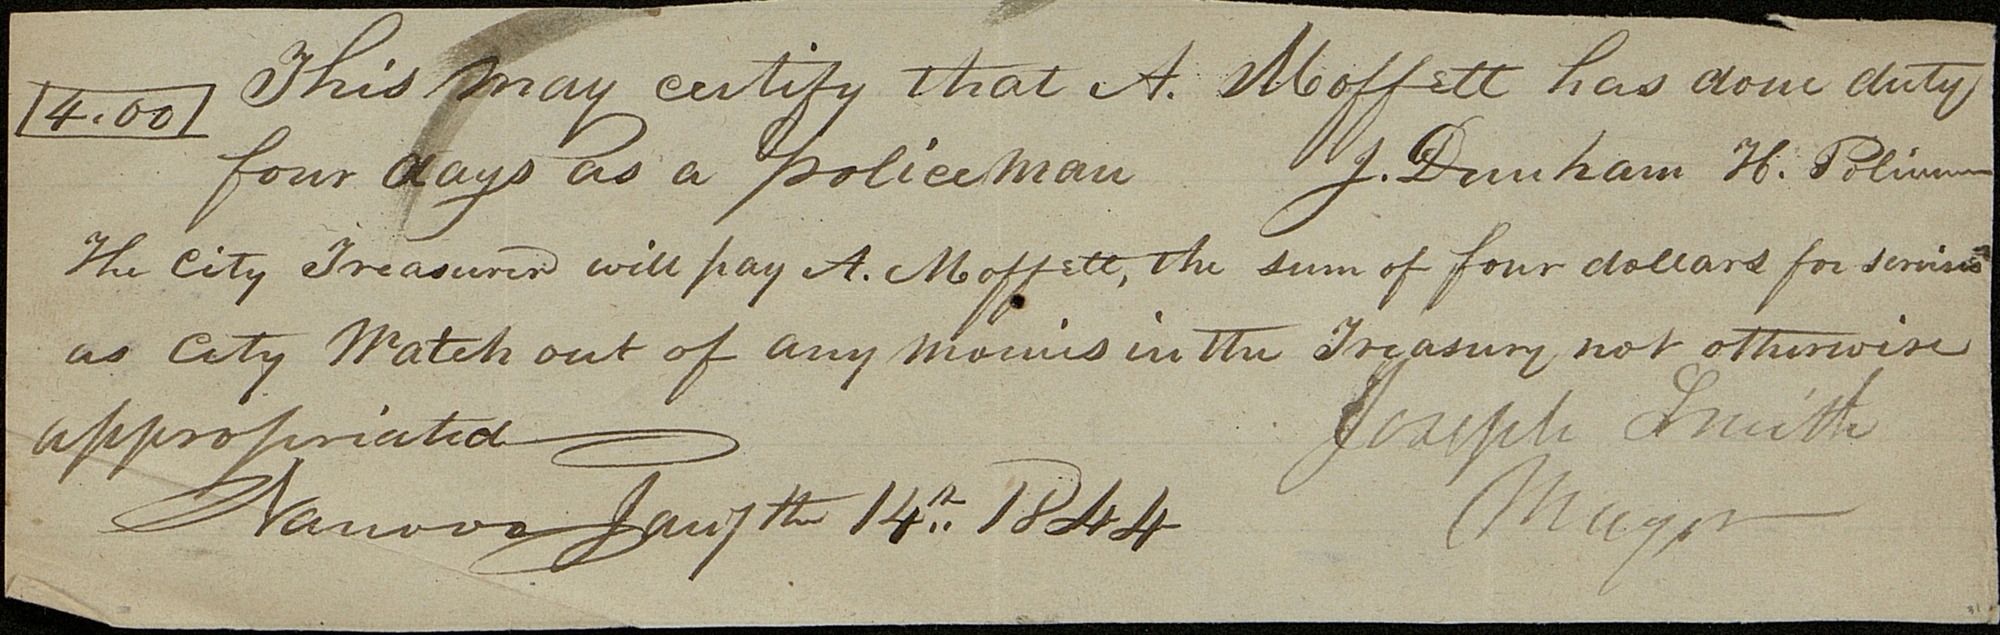 4.00 This may certify that A. Moffett has done duty
four days as a policeman J. Dunham H. Policeman
The City Treasurer will pay A. Moffett, the sum of four dollars for servises
as City Watch out of any monies in the Treasury not otherwise
appropriated
Joseph Smith
Nauvoo Jany the 14th. 1844
Mayor